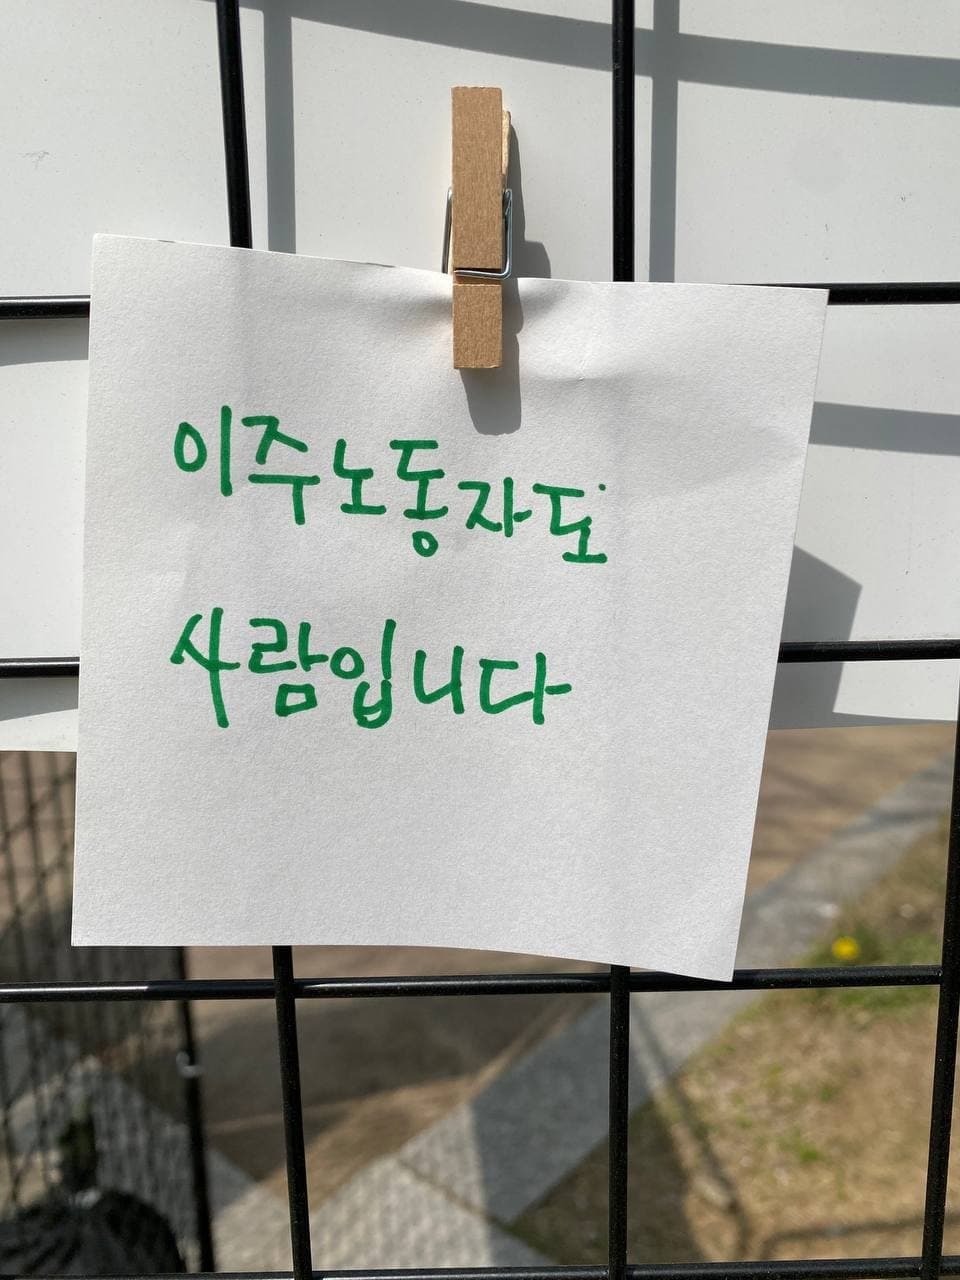 이주노동자도
사람입니다